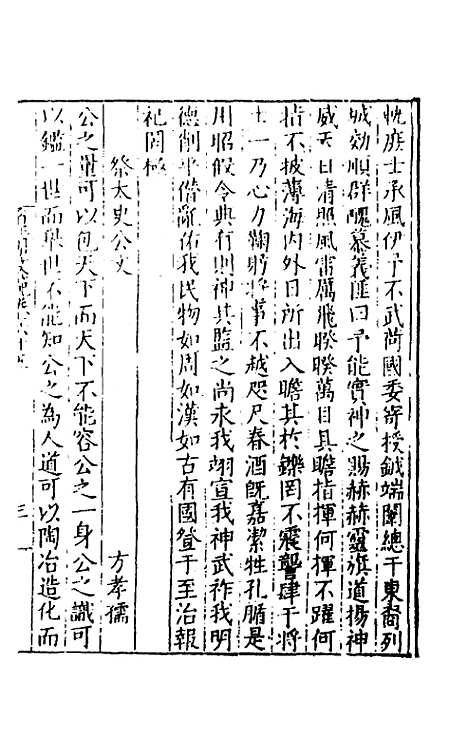 忱庶士承風伊予不武荷國委寄授鉞端闈總干東裔列
城効順群醜慕義匪曰予能實神之賜赫赫靈旗道揚神
威天日清照風雷厲飛睽睽萬目具瞻指揮何揮不躍何
指不披薄海內外日所出入瞻其於鑠罔不震讋肆干將
士一乃心力鞠躬將事不越咫尺春酒旣嘉潔牲孔腯是
用昭假令典有則神其監之尚永我翊宣我神武祚我明
德削平僭亂佑我民物如周如漢如古有國登于至治報
祀罔極
祭太史公文
方孝孺
公之量可以包天下而天下不能容公之一身公之識可
以鑑一世而舉世不能知公之為人道可以陶冶造化而
三